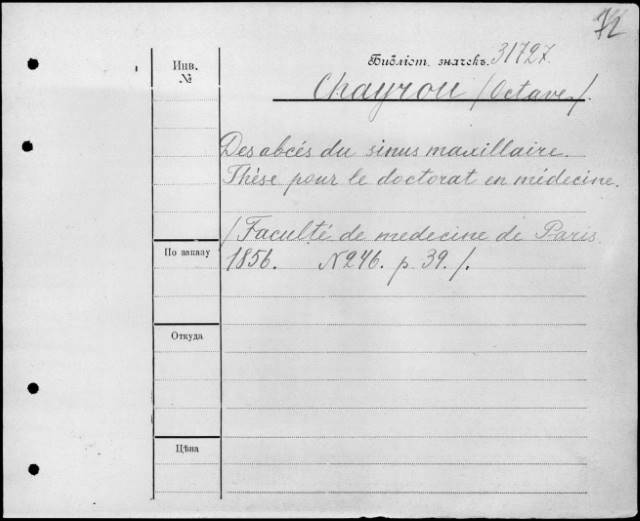 72
Инв.
№
Библіот. значекъ. 31727.
Chayrou /Octave/.
Des abcés du sinus maxillaire.
Thèse pour le doctorat en médecine.
/Faculté de medecine de Paris.
1856. N246. p. 39./.
По заказу
Откуда
Цѣна